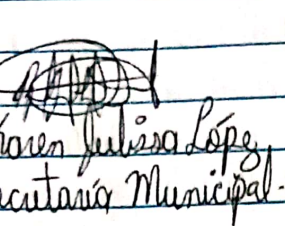 Karen Julissa López
Secutaria Municipal.